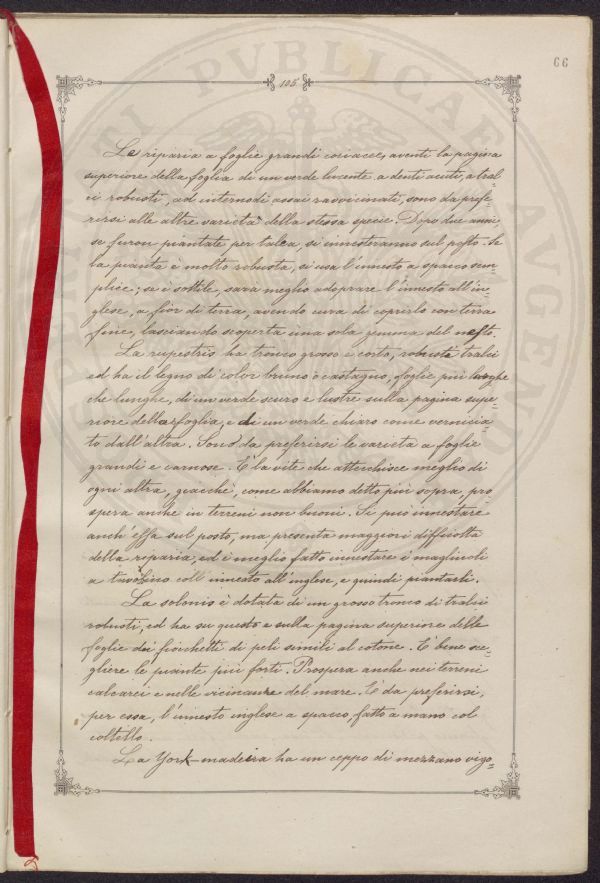 66
105
PVBLICAE
AVGEND
Le riparia a foglie grandi coriacee, aventi la pagina
superiore della foglia di un verde lucente a denti acuti, a tral=
ci robusti, ad internodi assai ravvicinati, sono da prefe=
rirsi alle altre varietà della stessa specie. Dopo due anni
se furon piantate per talea, si innesteranno sul posto. Se
la pianta è molto robusta, si usa l'innesto a spacco sem=
plice; se è sottile, sarà meglio adoprare l'innesto all'in=
glese, a fior di terra, avendo cura di coprirlo con terra
fine, lasciando scoperta una sola gemma del nesto.
La rupestris ha tronco grosso e corto, robusti tralci
ed ha il legno di color bruno o castagno, foglie più larghe
che lunghe, di un verde scuro e lustre sulla pagina supe=
riore della foglia, e di un verde chiaro come vernicia
to dall'altra. Sono da preferirsi le varietà a foglie
grandi e carnose. È la vite che attecchisce meglio di
ogni altra, giacchè, come abbiamo detto più sopra, pro=
spera anche in terreni non buoni. Si può innestare
anch'essa sul posto, ma presenta maggiori difficoltà
della riparia, ed è meglio fatto innestare i magliuoli
a tavolino coll'innesto all'inglese, e quindi piantarli.
La solonis è dotata di un grosso tronco di tralci
robusti, ed ha su questo e sulla pagina superiore delle
foglie dei fiocchetti di peli simili al cotone. È bene sce=
gliere le piante più forti. Prospera anche nei terreni
calcarei e nelle vicinanze del mare. È da preferirsi,
per essa, l'innesto inglese a spacco, fatto a mano col
coltello.
La York-madeira ha un ceppo di mezzano vigo=